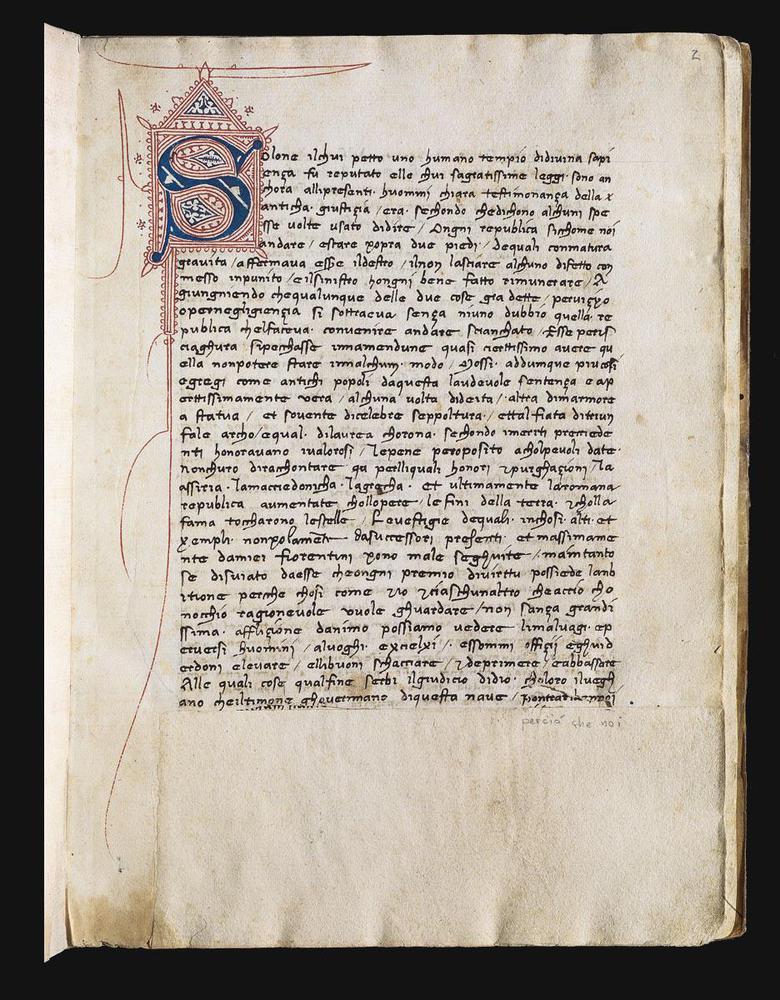 2
Solone ilchui petto uno humano tempio didivina sapi
ença fu reputato elle chui sagratissime leggi sono an
chora allipresenti huomini chiara testimonança della
anticha giustiçia / era sechondo chedichono alchuni spe
sse volte usato didire / Ongni republica sichome noi
andare / estare sopra due piedi / dequali conmatura
gravita / affermava esse ildestro / ilnon lasciare alchuno difetto con
messo inpunito / eilsinistro hongni bene fatto rimunerare / A
giungniendo chequalunque delle due cose gia dette / pervicço
opernegligiençia si sottraeva sença niuno dubbio quella re
publica chelfaceva convenire andare scianchato / Esse peris
ciaghura sipecchasse innamendune quasi ciertissimo avere qu
ella nonpotere stare innalchun modo / Mossi addumque piu cosi
egregi come antichi popoli daquesta laudevole sentença e ap
ertissimamente vera / alchuna volta dideita / altra dimarmore
a statua / et sovente dicelebre seppoltura / ettalfiata ditriun
fale archo / equal dilaurea chorona sechondo imeriti preciede
nti honoravano ivalorosi / lepene peroposito acholpevoli date
nonchuro dirachontare qa pelliquali honori purghaçioni / la
assiria lamacciedonicha lagrecha et ultimamente laromana
republica aumentate chollopere / le fini della terra cholla
fama tocharono lestelle / Levestigie dequali inchosi alti et
xempli nonsolamente dasuccessori presenti et massimame
nte damiei fiorentini sono male seghuite / maintanto
se disviato daesse cheongni premio divirttu possiede lanb
itione perche chosi come io ciaschunaltro cheaccio cho
nocchio ragionevole vuole ghuardare / non sança grandi
ssima affliçione danimo possiamo vedere limalvagi ep
erversi huomini / aluoghi excielxi / essommi officii eghuid
erdoni elevare / ellibuoni schacciare / deprimere / eabbassare
Alle quali cose qualfine serbi ilgiudicio didio choloro ilvegh
ano cheiltimone ghovernano diquesta nave /
perciò che noi